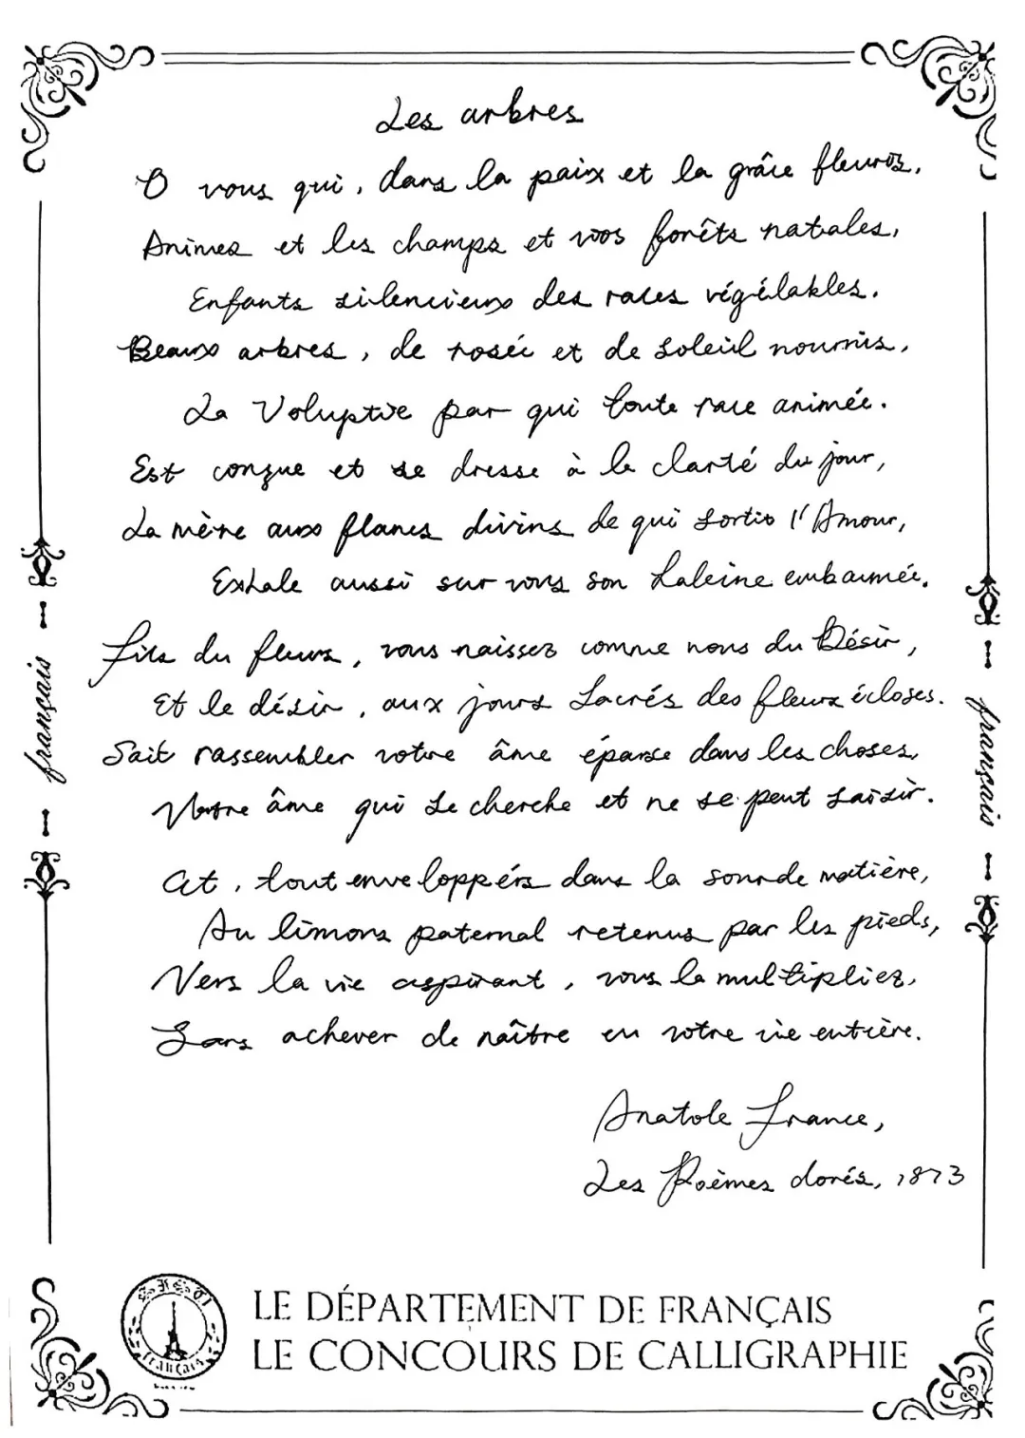 Les arbres
O vous qui, dans la paix et la grâce fleuris,
Animez et les champs et vos forêts natales,
Enfants silencieux des races végétales,
Beaux arbres, de rosée et de soleil nourris,
La Volupté par qui toute race animée.
Est conçue et se dresse à la clarté du jour,
La mère aux flancs divins de qui sortit l'Amour,
Exhale aussi sur vous son haleine embaumée.
Fils du fleurs, vous naissez comme nous du Désir,
Et le désir, aux jours sacrés des fleurs écloses.
Sait rassembler votre âme éparse dans les choses,
Votre âme qui se cherche et ne se peut saisir.
Et, tout enveloppés dans la sourde matière,
Au limons paternal retenus par les pieds,
Vers la vie aspirant, vous la multipliez,
Sans achever de naître en votre vie entière.
Anatole France,
Les Poèmes dorés, 1873
français
français
français
LE DÉPARTEMENT DE FRANÇAIS
LE CONCOURS DE CALLIGRAPHIE